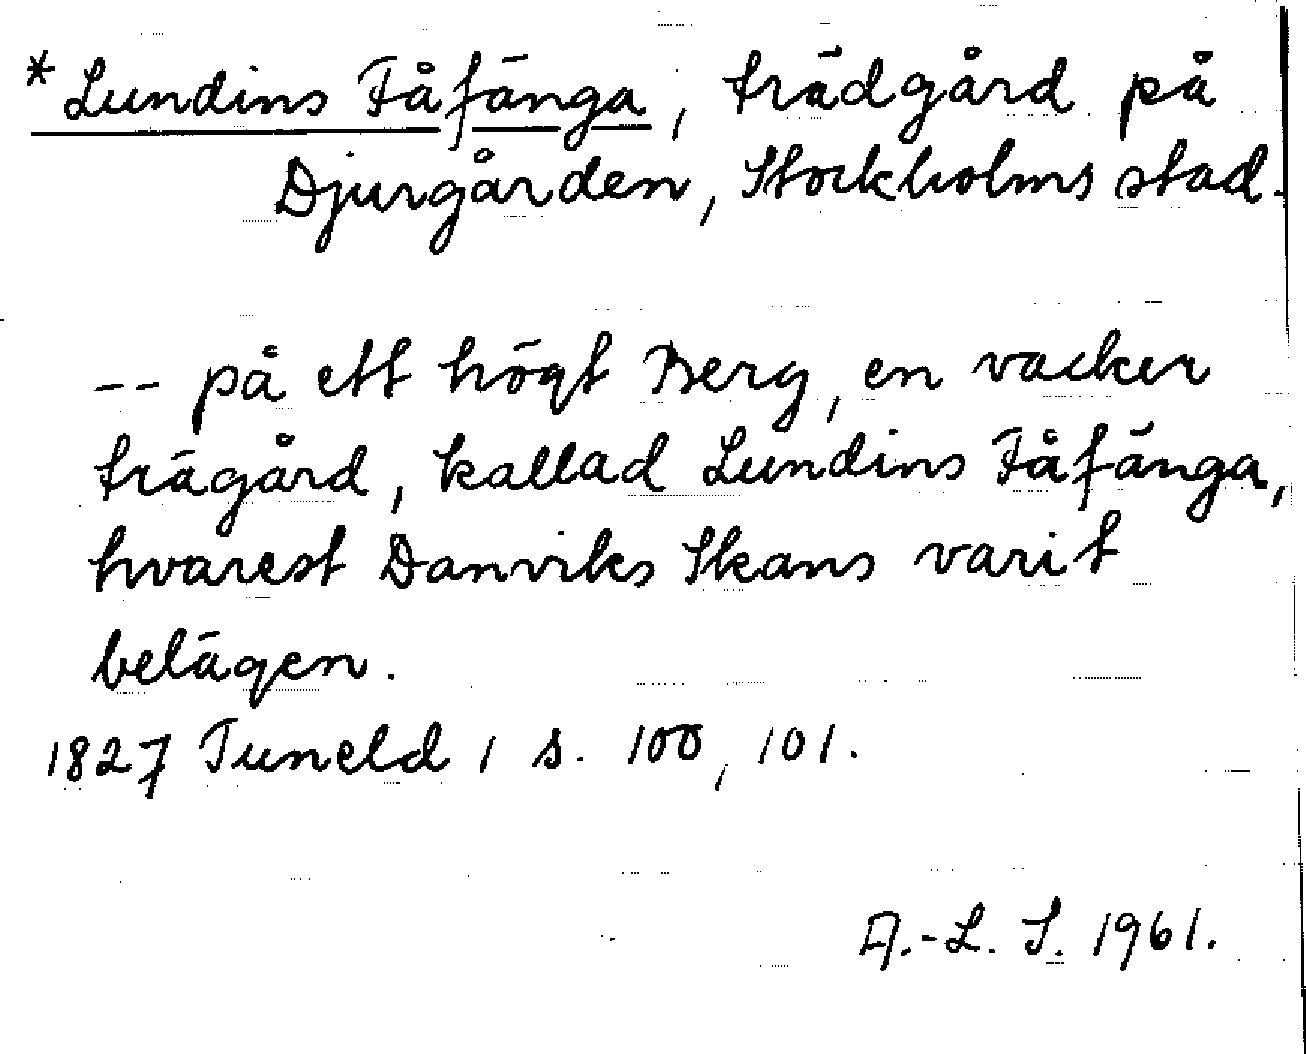 * Lundins Fåfänga, trädgård på
Djurgården, Stockholms stad.
-- på ett högt Berg, en vacker
trägård, kallad Lundins Fåfänga,
hvarest Danviks Skans varit
belägen.
1827 Tuneld 1 s. 100, 101.
A.-L. S. 1961.